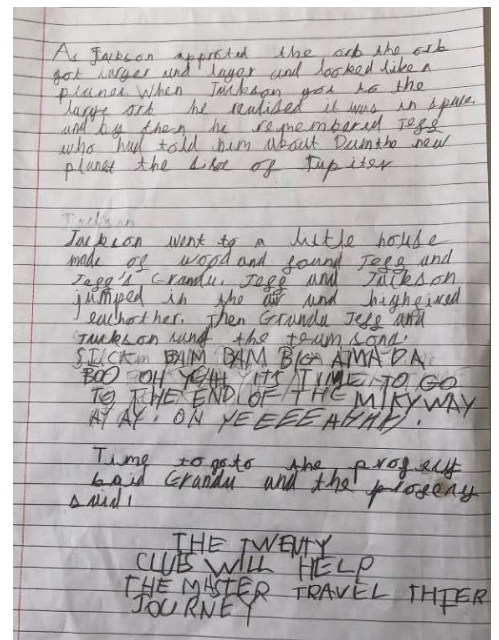 As Jackson approted the orb the orb
got larger and lager and looked like a
planet when Jackson got to the
large orb he realised it was in space.
and by then he remembered Jegg
who had told him about Duintho new
planet the size of Jupiter
Jackson
Jackson went to a little house
made of wood and found Jegg and
Jegg's Grandu. Jegg and Jackson
jumped in the air and highfived
eachother. Then Grandu Jegg and
Jackson sund the team song.
BAM BAM BIGA AMADA
BOO OH YEAH ITS TIME TO GO
TO THE END OF THE MIKYWAY
AY AY. OH YEEEEAHHH.
Time to goto the profecy
said Grandu and the profecy
said!
THE TWENTY
CLUBS WILL HELP
THE MASTER TRAVEL THIER
JOURNEY